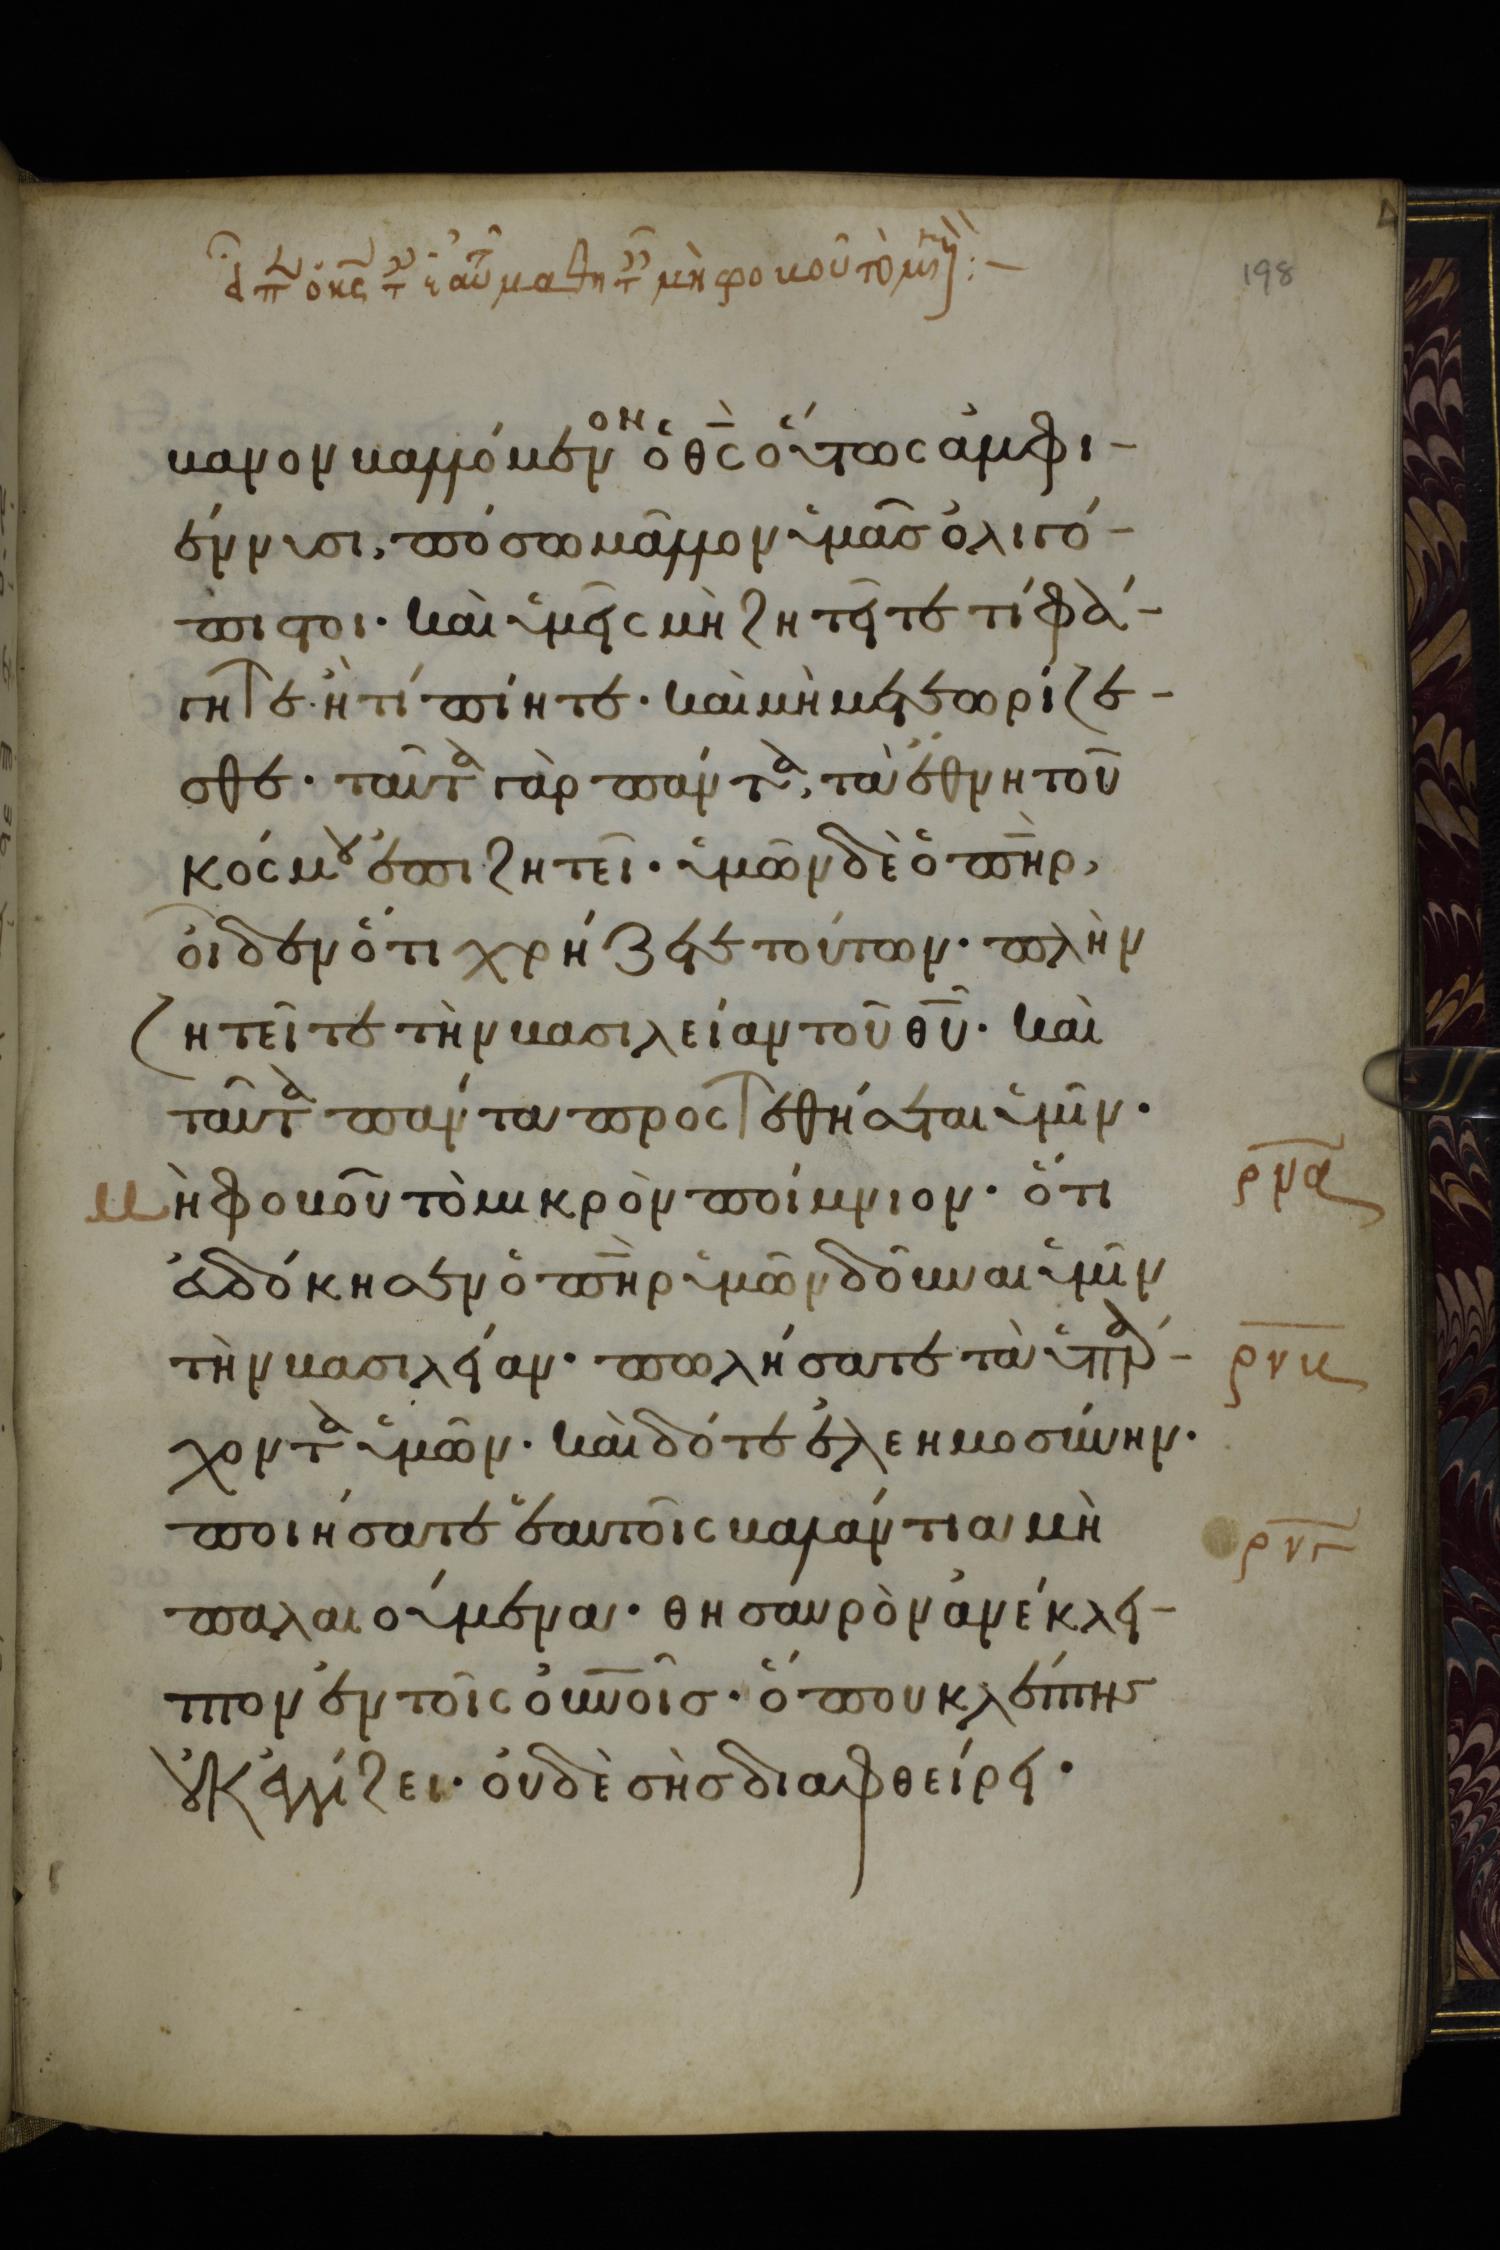 198
εἶπεν ὁ κς τοῖς ἑαυτοῦ μαθηταῖς μὴ φοβοῦ τὸ μικ:–
βανον βαλλόμενον ὁ θς οὕτως ἀμφι-
έννυσι, πόσω μᾶλλον ὑμᾶς ὀλιγό-
πιστοι· καὶ ὑμεῖς μὴ ζητεῖτε τί φά-
γητε· ἢ τί πίητε· καὶ μὴ μετεωρίζε-
σθε· ταῦτα γὰρ πάντα, τὰ ἔθνη τοῦ
κόσμου ἐπιζητεῖ· ὑμῶν δὲ ὁ πηρ,
οἶδεν ὅτι χρήζετε τούτων· πλὴν
ζητεῖτε τὴν βασιλείαν τοῦ θυ· καὶ
ταῦτα πάντα προστεθήσεται ὑμῖν·
Μὴ φοβοῦ τὸ μικρὸν ποίμνιον· ὅτι ρνα
εὐδόκησεν ὁ πηρ ὑμῶν δοῦναι ὑμῖν
τὴν βασιλείαν· πωλήσατε τὰ ὑπάρ- ρνβ
χοντα ὑμῶν· καὶ δότε ἐλεημοσύνην·
ποιήσατε ἑαυτοῖς βαλάντια μὴ ρνγ
παλαιούμενα· θησαυρὸν ἀνέκλει-
πτον ἐν τοῖς οὐνοῖς· ὅπου κλέπτης
οὐκ ἐγγίζει· οὐδὲ σὴς διαφθείρει·